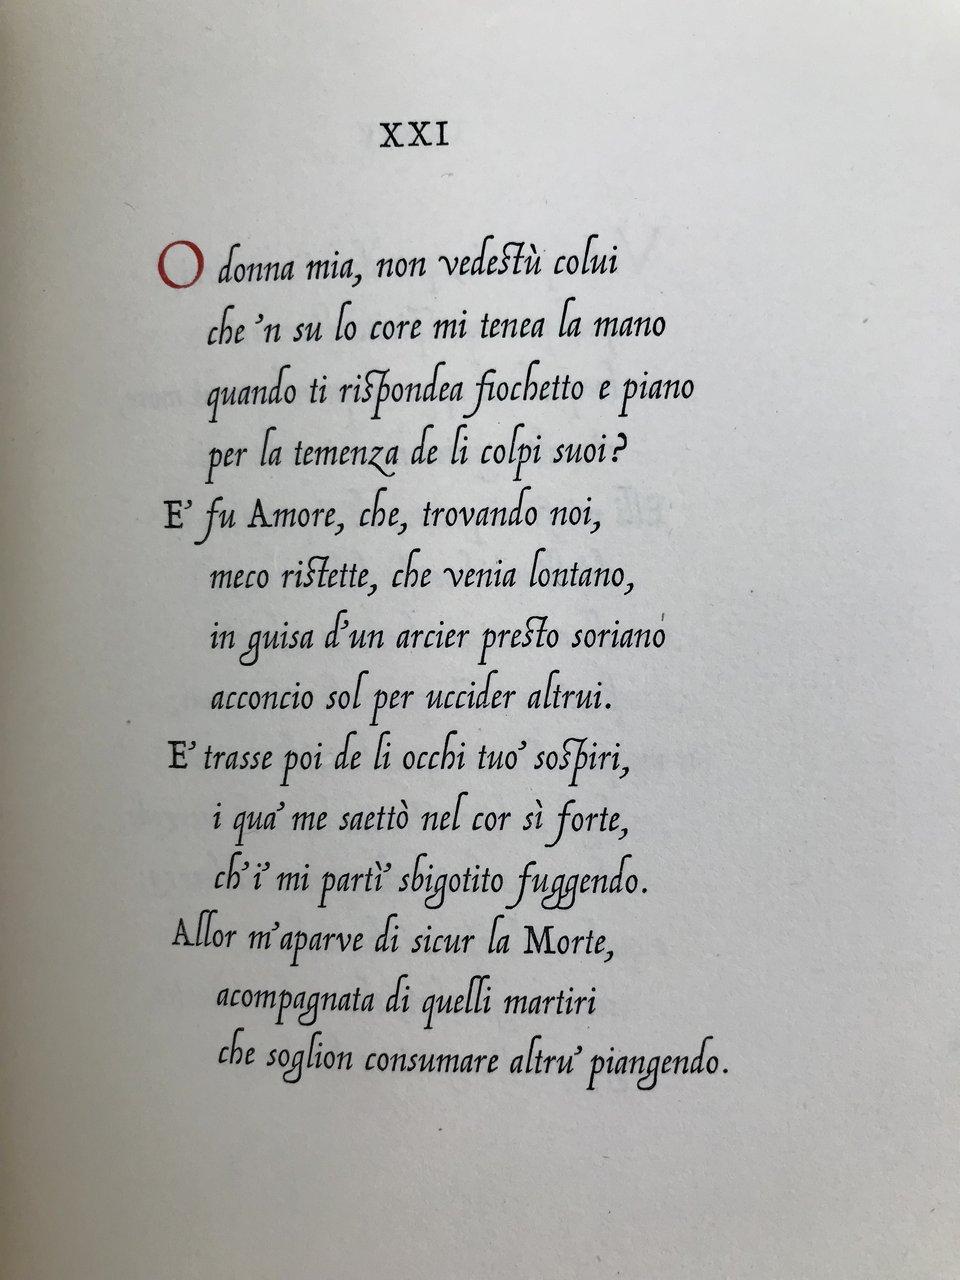 XXI
O donna mia, non vedestù colui
che ’n su lo core mi tenea la mano
quando ti rispondea fiochetto e piano
per la temenza de li colpi suoi?
E’ fu Amore, che, trovando noi,
meco ristette, che venia lontano,
in guisa d’un arcier presto soriano
acconcio sol per uccider altrui.
E’ trasse poi de li occhi tuo’ sospiri,
i qua’ me saettò nel cor sì forte,
ch’i’ mi partì’ sbigotito fuggendo.
Allor m’aparve di sicur la Morte,
acompagnata di quelli martiri
che soglion consumare altru’ piangendo.